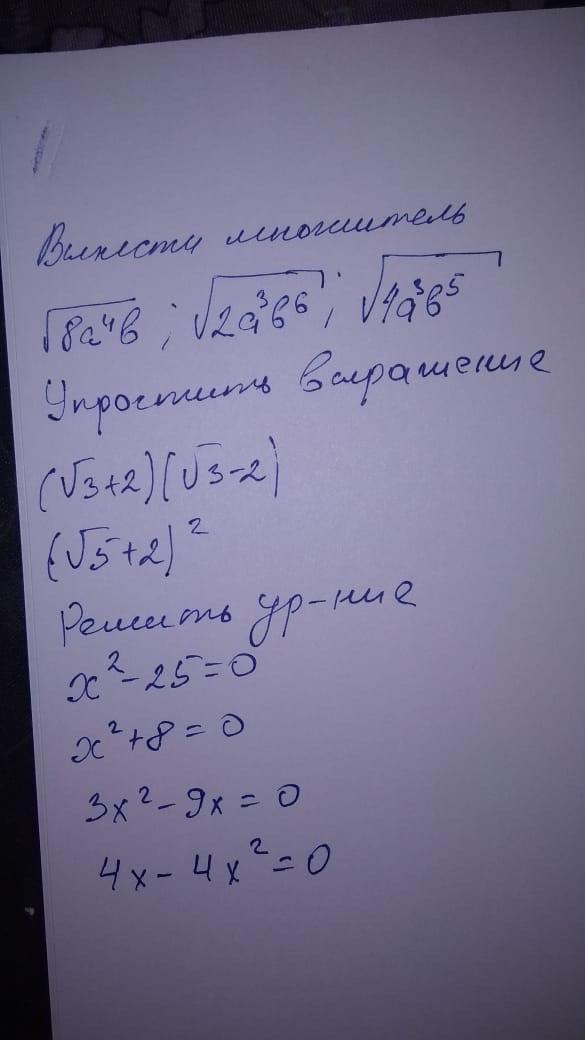 Вынести множитель
√8a⁴b ; √2a³b⁶ ; √4a³b⁵
Упростить выражение
(√3+2)(√3-2)
(√5+2)²
Решить ур-ние
x²-25=0
x²+8=0
3x²-9x=0
4x-4x²=0